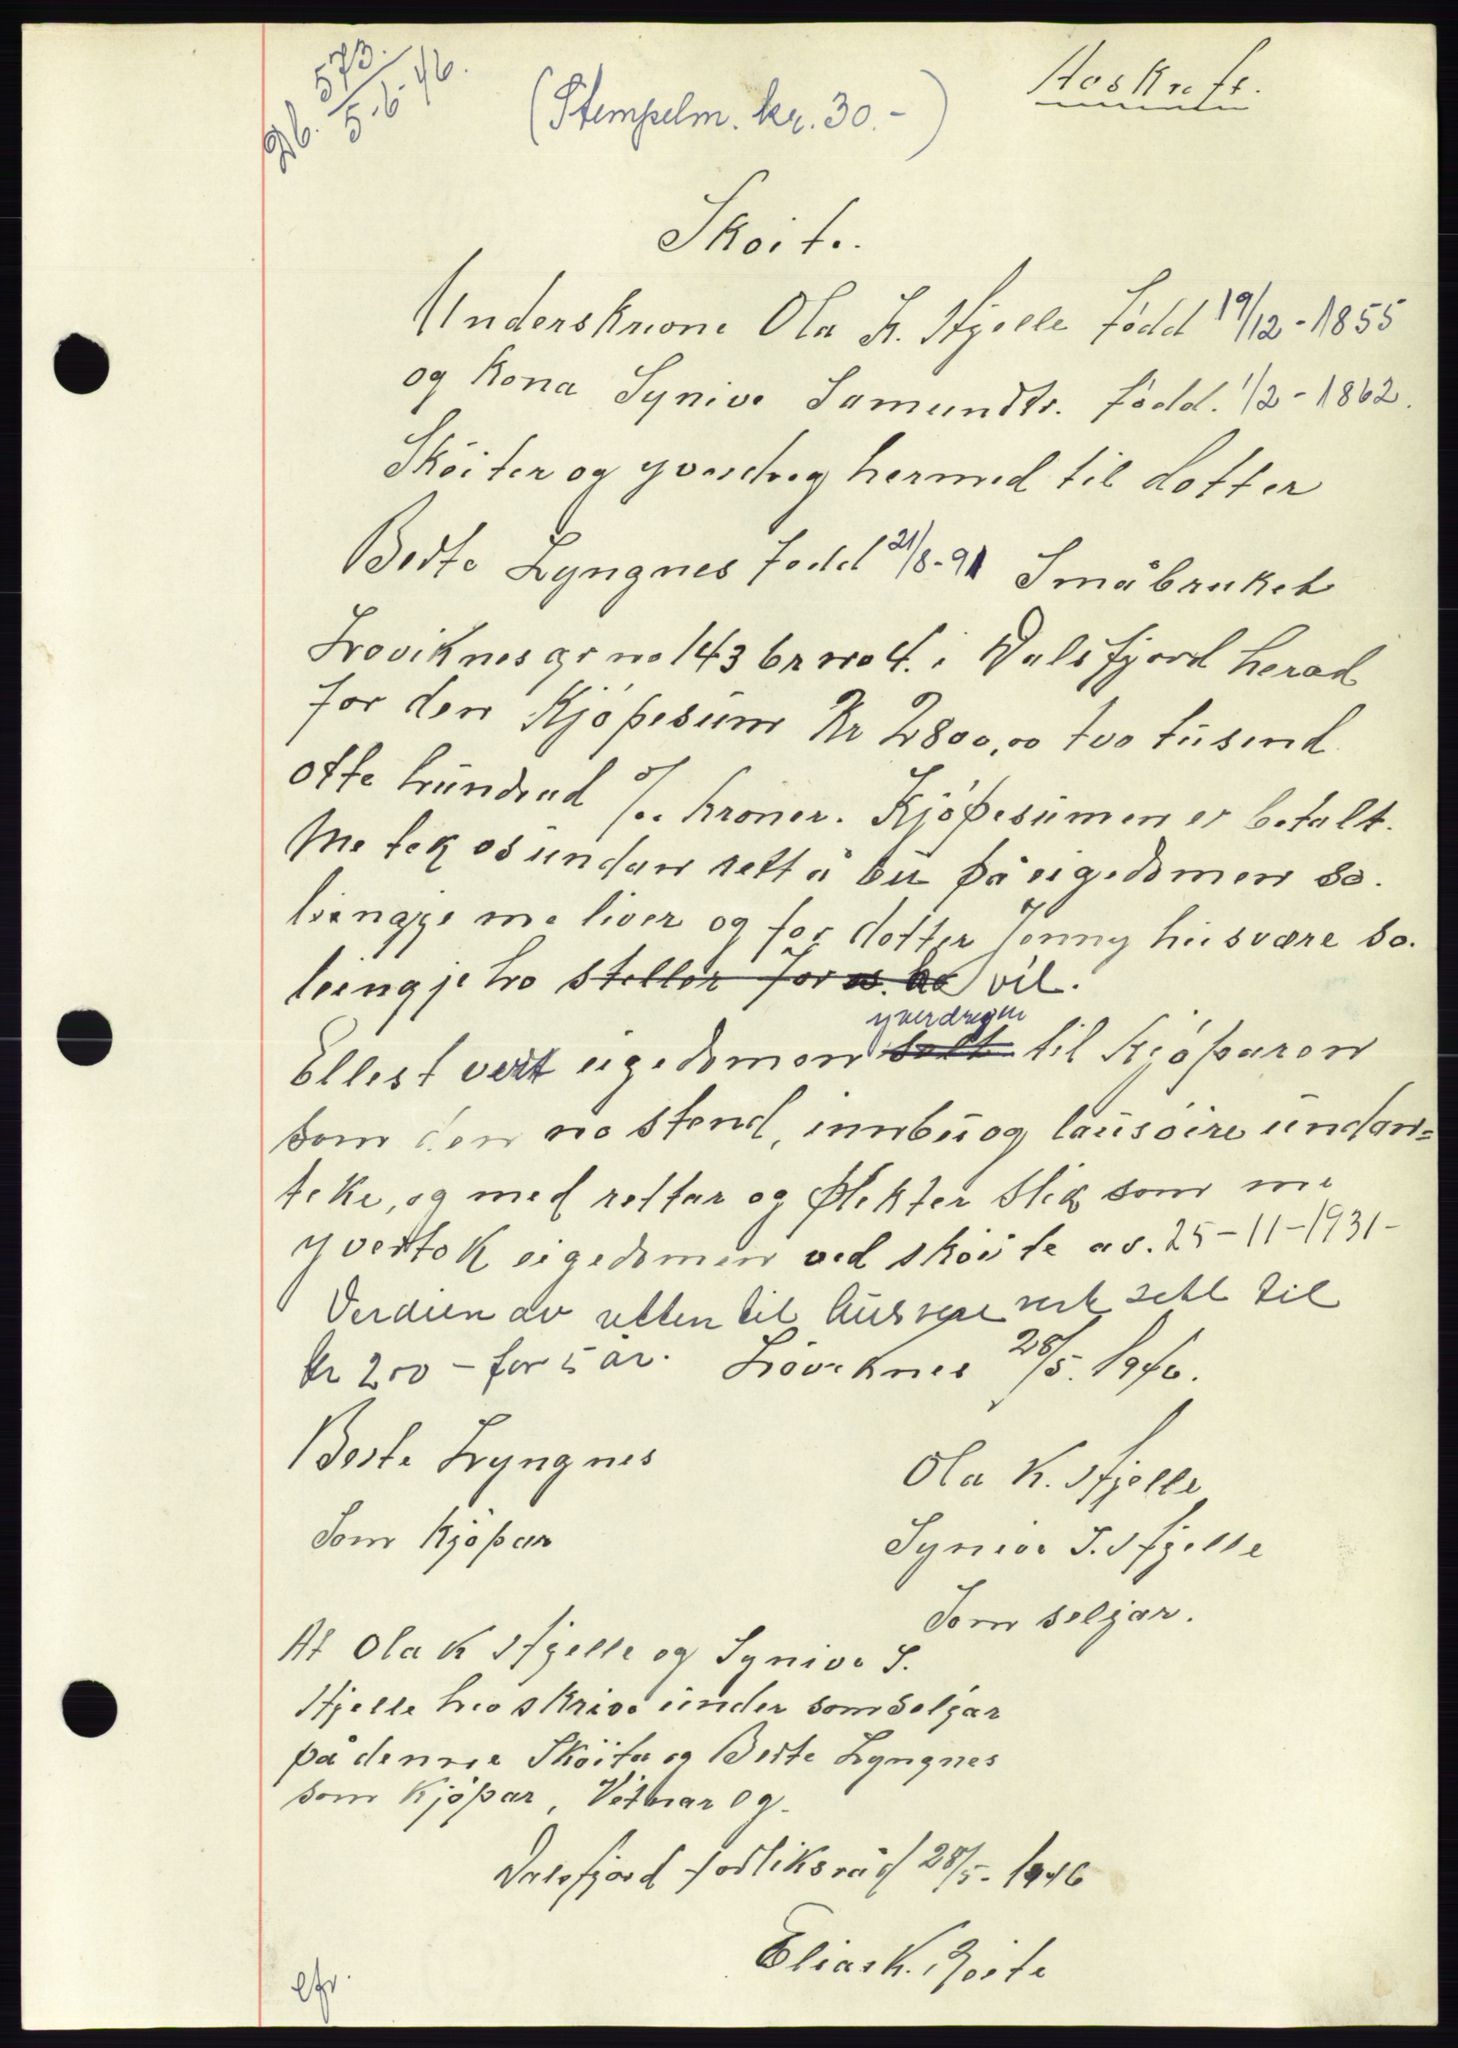 Db. 573.
5-6-46.
(Stempelm. kr. 30.-)
Avskreft.
Skøite.
Underskrivne Ola K. Hjelle Født 19/12-1855
og Kona Synive Samundtr. født. 1/2-1862.
Skøiter og yverdreg hermed til dotter
Berte Lyngnes født 21/8-91 Småbruket
Løviknes gr no 143 br no 4. i Dalsfjord herad
for den Kjøpesum Kr 2800,00 two tusend
otte hundrad 0/00 kroner. Kjøpesumen er betalt.
Me tek os undan rett å bu på eigedomen so.
lengje me liver og for dotter Jenny husvære so.
lengje ho steller for os. ho vil.
yverdregen
Ellest vert eigedomen selt til Kjøparen
som den no stend, innbu og lausøire undan=
teke, og med rettar og plikter slik som me
yvertok eigedomen ved skøite av. 25-11-1931-
Verdien av retten til husvære vert sett til
kr 200 - for 5 år. Løviknes 28/5. 1946.
Berte Lyngnes
Ola K. Hjelle
Som Kjøpar
Synive S. Hjelle
Som seljar.
At Ola K Hjelle og Synive S.
Hjelle hev skrive under som seljar
på denne Skøita og Berte Lyngnes
som Kjøpar, Vitnar og.
Dalsfjord forliksråd 28/5-1946
Elias K.
efr.